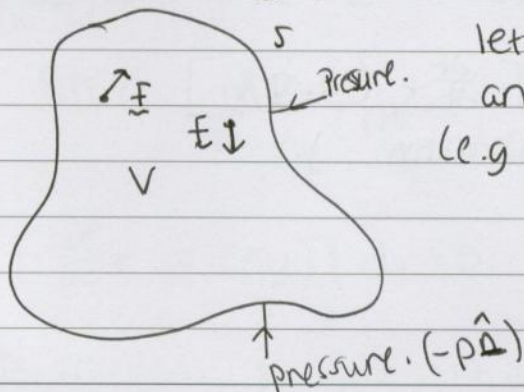 S
let
Presure.
an
F
(e.g
F
V
pressure. (-pn̂)